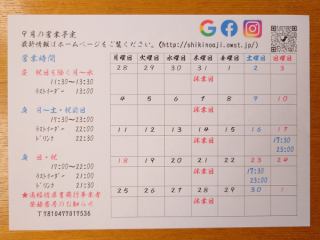 9月の営業予定
最新情報はホームページをご覧ください。(http://shikinoaji.owst.jp/)
営業時間
月曜日 火曜日 水曜日 木曜日 金曜日 土曜日 日曜日
昼 祝日を除く月~水
11:30~13:30
ラストオーダー 13:00
夜 月~土・祝前日
17:00~22:00
ラストオーダー 21:00
ドリンク 21:30
夜 日・祝
17:00~22:00
ラストオーダー 21:00
ドリンク 21:30
28 29 30 31 1 2 3
休業日
4 5 6 7 8 9 10
休業日
11 12 13 14 15 16 17
休業日 17:30 23:00
18 19 20 21 22 23 24
休業日 17:30 23:00
25 26 27 28 29 30 1
休業日
★適格請求書発行事業者
登録番号のお知らせ
T9810497017536